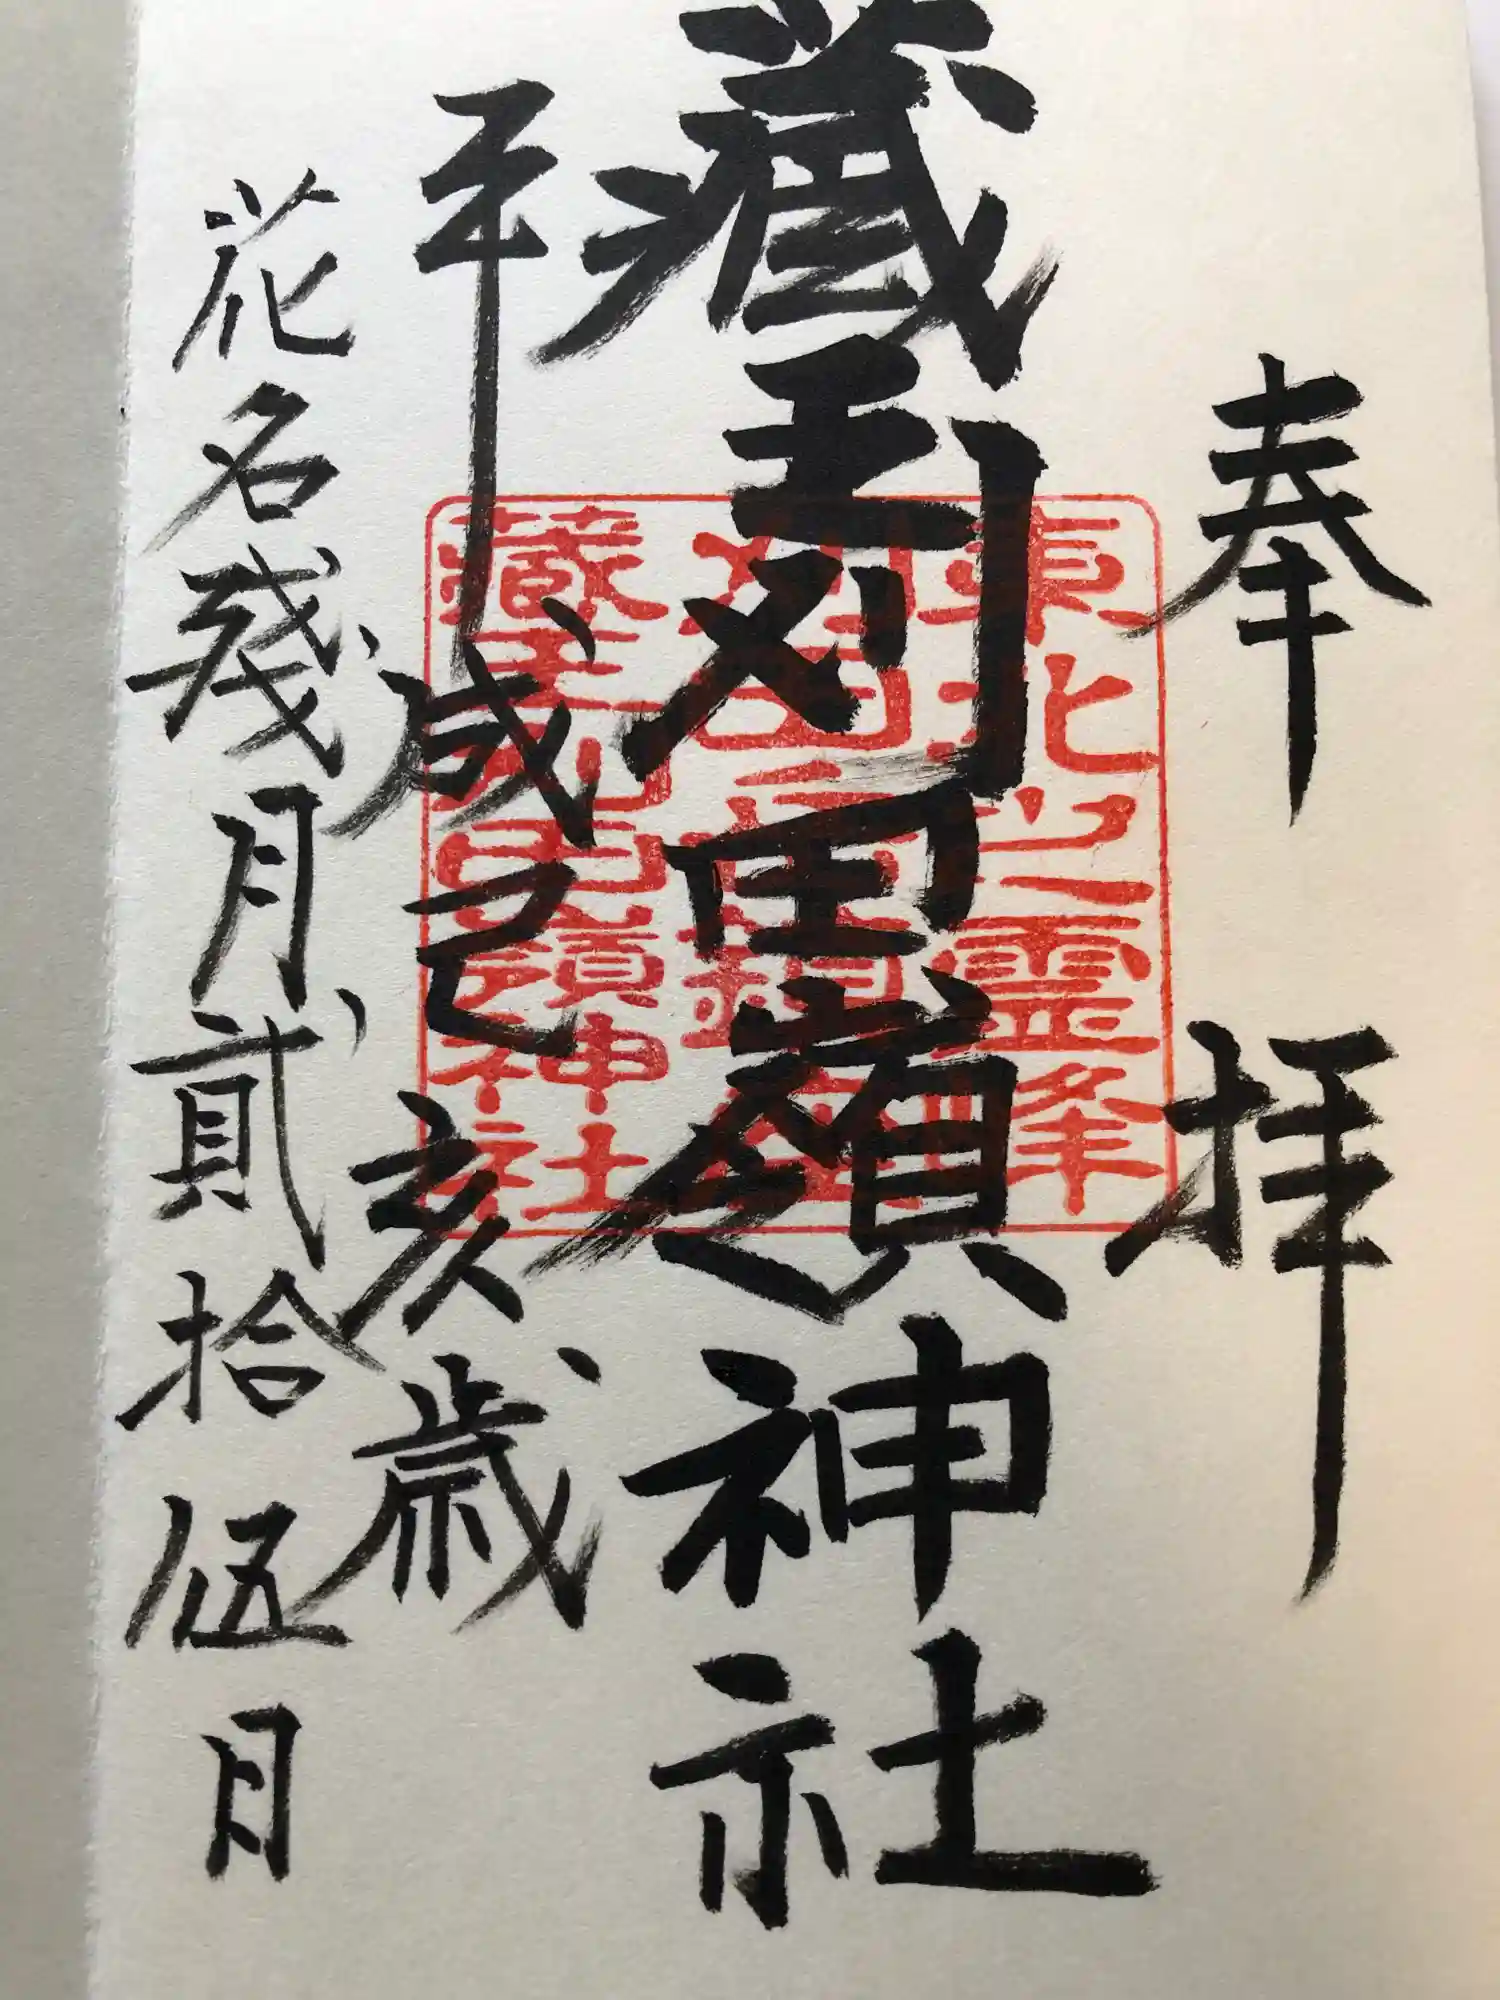 奉拝
藏王刈田嶺神社
平成己亥歳
花名残月貳拾伍日
東北之霊峰
藏王刈田嶺神社